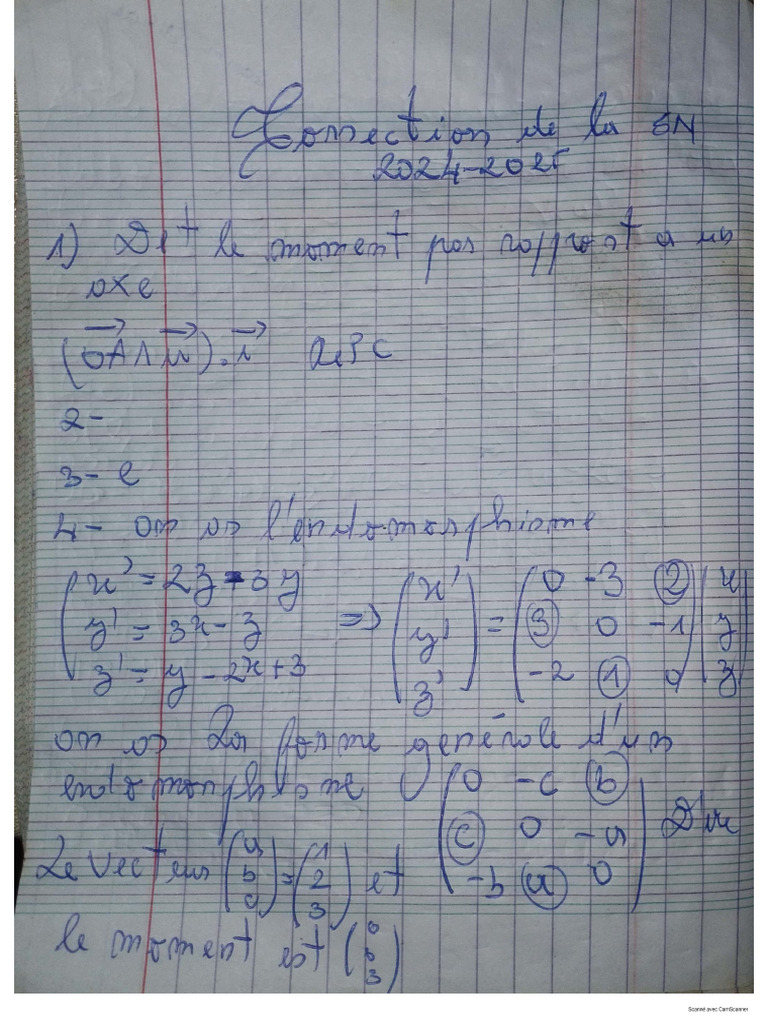 Correction de la SN
2024-2025
1) Det le moment par rapport a un
axe
(OA∧u).u
2-
3- e
4- On a l'endomorphisme
x' = 2z - 3y
y' = 3x - z
z' = y - 2x + 3
=> (x' y' z') = (0 -3 2 3 0 -1 -2 1 0)(x y z)
on a la forme generale d'un
endomorphisme (0 -c b c 0 -a -b a 0) D'où
Le vecteur (a b c) = (1 2 3) et
le moment est (0 0 3)
Scanné avec CamScanner